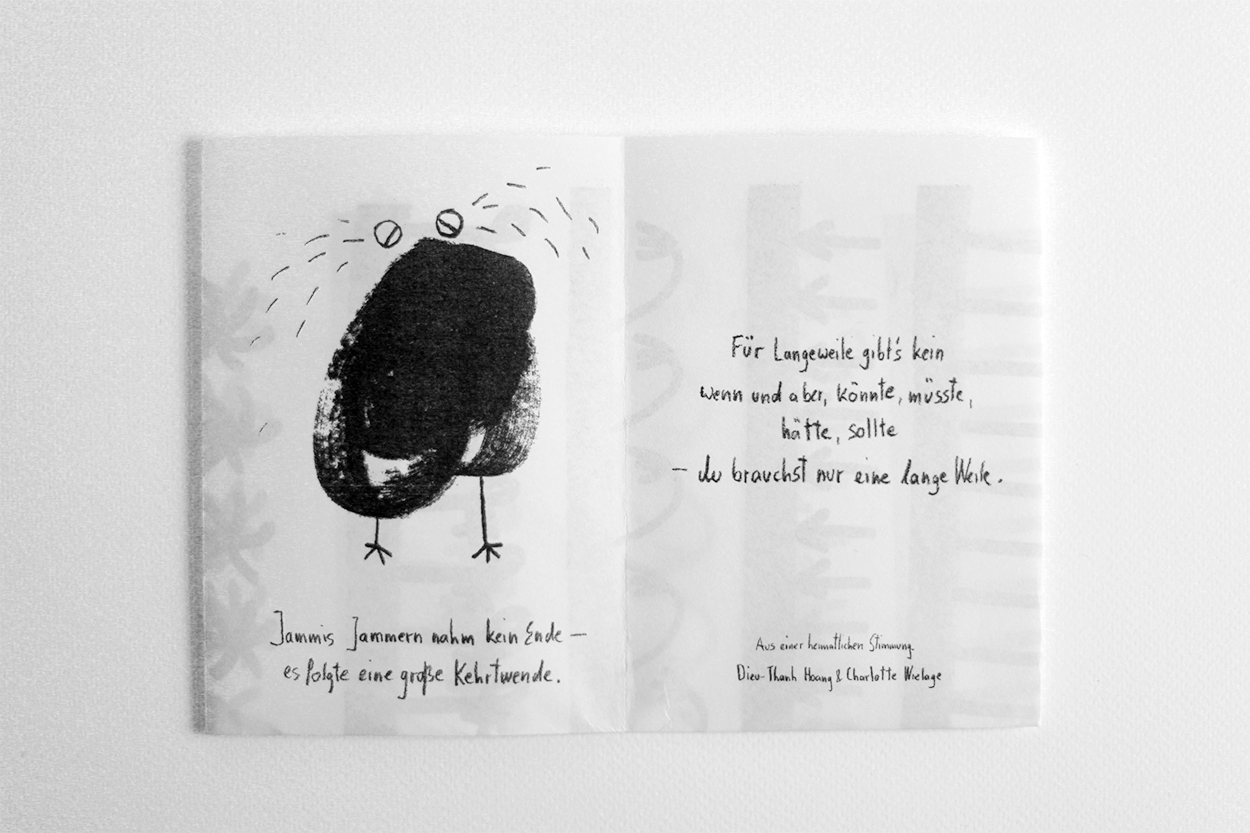 Jammis Jammern nahm kein Ende –
es folgte eine große Kehrtwende.
Für Langeweile gibt's kein
wenn und aber, könnte, müsste,
hätte, sollte
– du brauchst nur eine lange Weile.
Aus einer heimatlichen Stimmung.
Dieu-Thanh Hoang & Charlotte Wielage